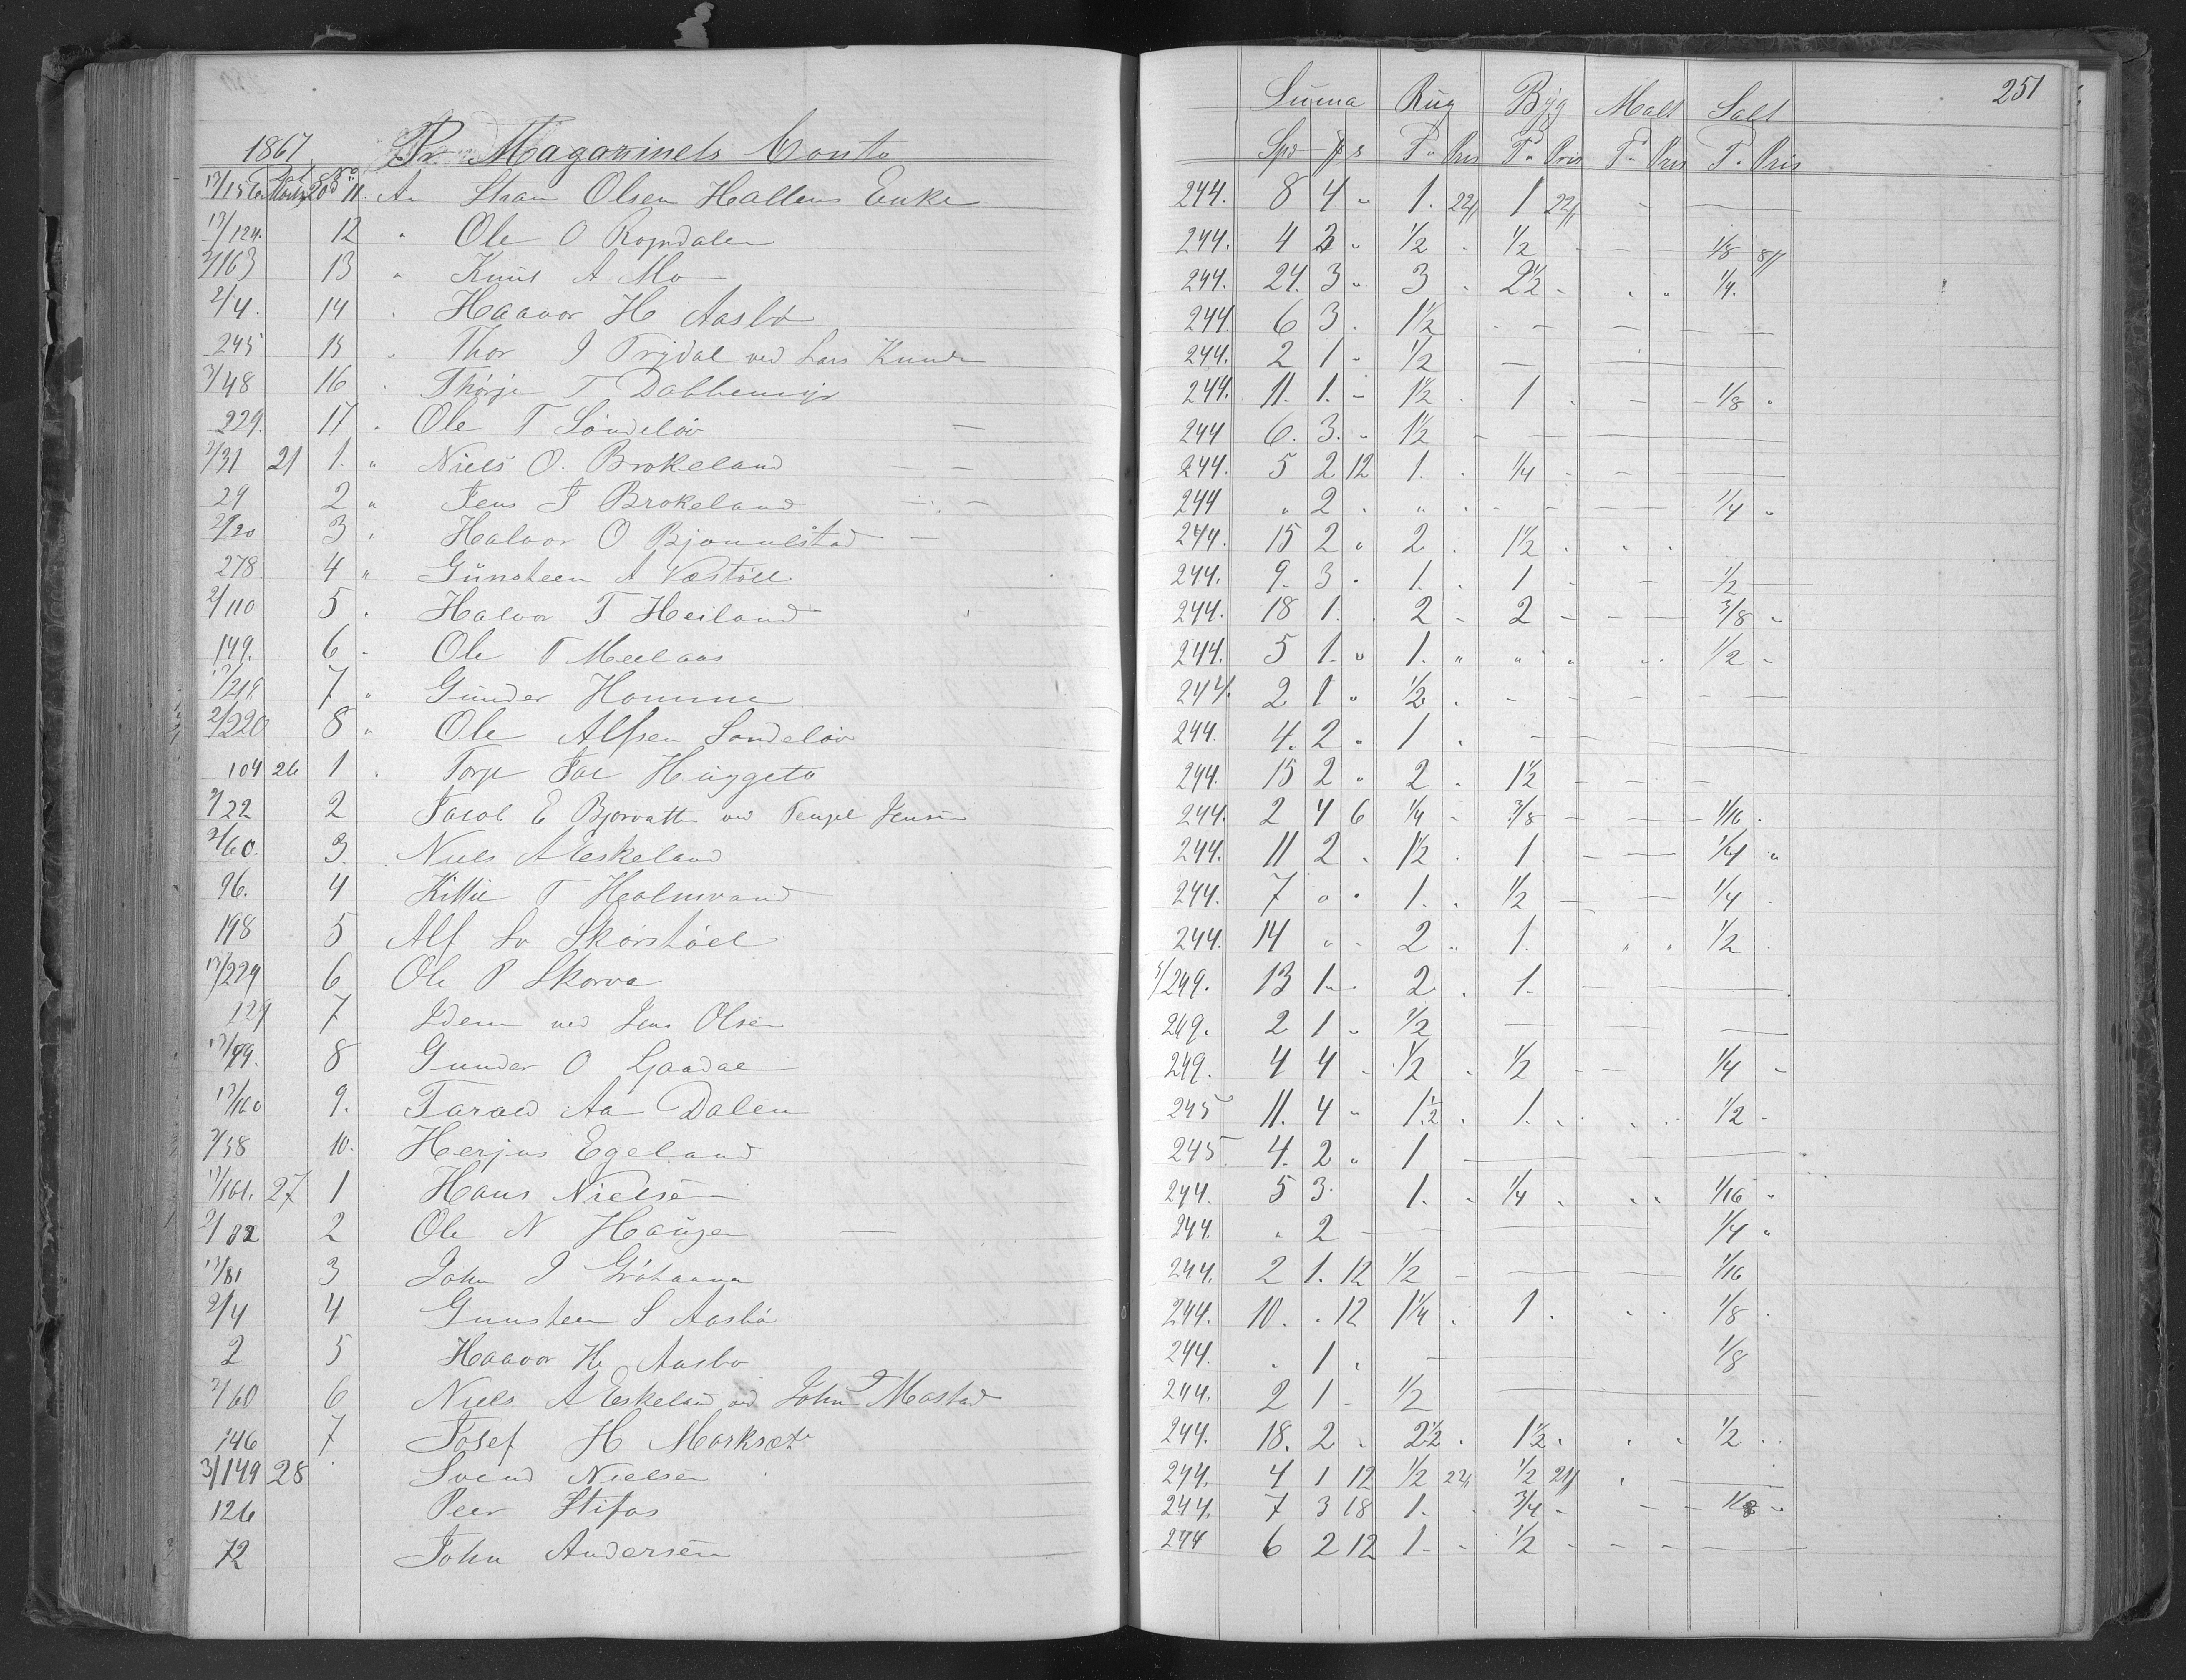 251
Suma Rug Byg Malt Salt
1867 Pr Magazinets Conto Spd ƒ s T. Pris T. Pris T. Pris T. Pris
13/156 Marts 20 11. An Olsen Hallens Enke 244. 8 4 „ 1. 22 1 22 - -
13/124. 12 „ Ole O Rosndalen 244. 4 3 „ 1/2 . 1/2 - - 1/8 8
2/163 13 „ Knut A Mo 244. 24. 3 „ 3 . 2 1/2 - . „ 1/4.
2/4. 14 „ Haavor H Aasbø 244 6 3 . 1 1/2 . - - -
245 15 „ Thor J Trydal ved Lars Knuds 244. 2 1 - 1/2 - - -
3/48 16 . Thorje T Dabbemyr 244. 11. 1. - 1 1/2 . 1 . - - 1/8 .
229. 17 „ Ole T Søndeløv - 244 6. 3. „ 1 1/2 - - - -
2/31 21 1. „ Niels O. Brokeland - 244. 5 2 12 1. . 1/4 - - -
29 2 „ Jens J Brokeland - 244 „ 2 . „ . - - - 1/4 „
2/20 3 „ Halvor O Bjønnestad - 244. 15 2 „ 2 . 1 1/2 . . .
278 4 „ Günsteen A Væstøl 244. 9. 3 . 1. . 1 - - 1/2
2/110 5 . Halvor T Heiland 244. 18 1. . 2 - 2 - - - 3/8 -
149. 6 . Ole T Meelaas 244. 5 1. „ 1. „ „ „ „ 1/2 -
13/219 7 „ Günder Homme 244. 2 1 „ 1/2 . - - - -
2/220 8 „ Ole Alfsen Søndeløv 244. 4. 2 „ 1 . - - -
104 26 1 . Torje Jac Huggeto 244. 15 2 „ 2 . 1 1/2 - - -
2/22 2 Jacob E Bjorvatten ved Tengel Jensen 244. 2 4 6 1/4 - 3/8 - - 1/16 .
2/60. 3. Niels A Eskeland 244. 11 2 . 1 1/2 . 1. - - 1/4 „
96. 4 Kittil T Holmvand 244. 7 „ . 1. . 1/2 - - 1/4 .
198 5 Alf Sv Skorstøl 244. 14 „ - 2 „ 1. „ „ 1/2 .
13/224 6 Ole P Skorve 5/249. 13 1. . 2 . 1. - - -
229 7 Idem ved Jens Olsen 249. 2 1 „ 1/2 - - -
13/49. 8 Gunder O Gaadal 249. 4 4 - 1/2 . 1/2 - - 1/4 -
13/160 9. Tarald Aa Dalen 245 11. 4 „ 1. 1/2 . 1. . . . 1/2 -
2/38 10. Herjus Egeland 245 4. 2 „ 1 - - -
13/161. 27 1 Hans Nielsen 244. 5 3. 1. . 1/4 . . . 1/16 „
2/82 2 Ole N Haugen - 244. „ 2 - - - 1/4 „
13/81 3 John J Gröhaana 244. 2 1. 12 1/2 - - - 1/16
2/4 4 Gunsteen S Aasbø 244. 10. . 12 1 1/4 . 1 . . . 1/8 .
2 5 Haavor H Aasbø 244. „ 1 . - - 1/8
2/60 6 Niels A Eskeland ved John J Mostad 244. 2 1 - 1/2 - - -
146 7 Josef H Morksæt 244. 18. 2 „ 2 1/2 . 1 1/2. . . 1/2 . .
3/149 28 Svend Nielsen 244. 4 1 12 1/2 22 1/2 21 . -
126 Peer Stifos 244. 7 3 18 1. . 3/4 - - - 1/8 -
72 John Andersen - 244 6 2 12 1. - 1/2 - - - -